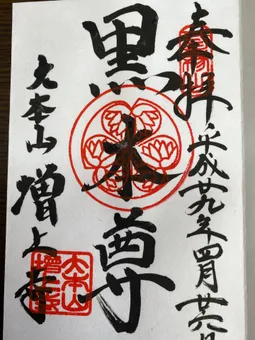 奉拝
平成廿九年四月廿六日
黒本尊
大本山
増上寺
大本山
増上寺